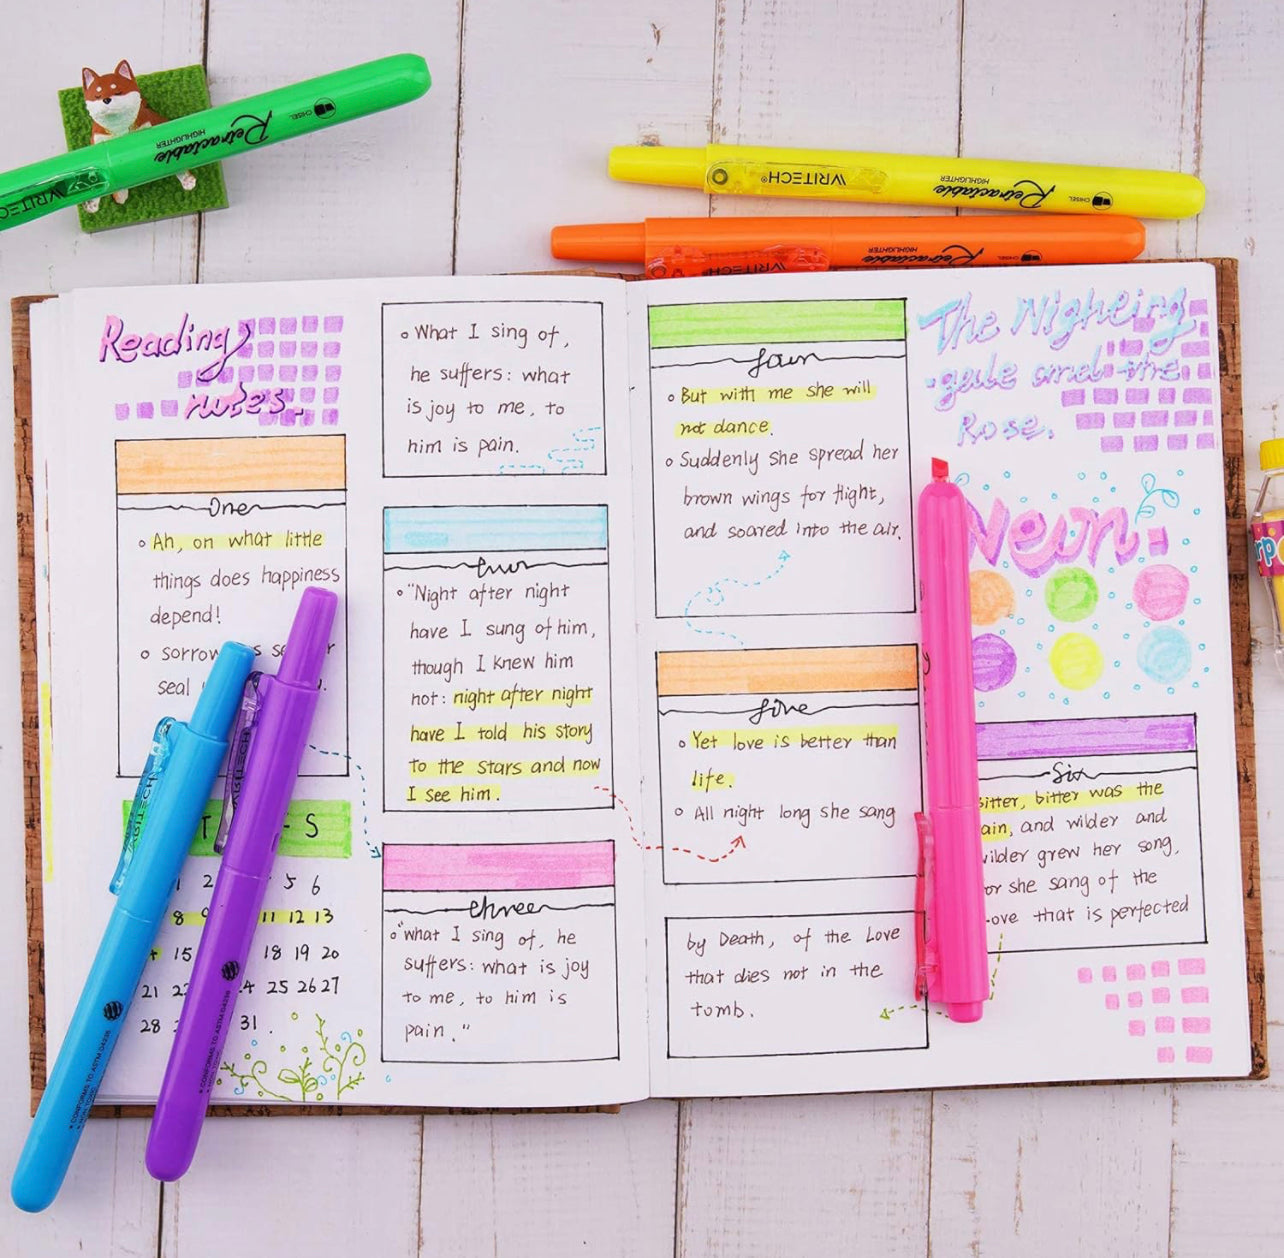 Reading
notes.
One
Ah, on what little
things does happiness
depend!
sorrow
seal
T - S
1 2 5 6
8 9 11 12 13
15 18 19 20
21 25 26 27
28 31.
What I sing of,
he suffers: what
is joy to me, to
him is pain.
"Night after night
have I sung of him,
though I knew him
not: night after night
have I told his story
to the stars and now
I see him.
three
"what I sing of, he
suffers: what is joy
to me, to him is
pain."
But with me she will
not dance.
Suddenly she spread her
brown wings for flight,
and soared into the air.
five
Yet love is better than
life.
All night long she sang
by Death, of the Love
that dies not in the
tomb.
The Nigheing
-gale and the
Rose.
Neon.
Six
bitter, bitter was the
ain, and wilder and
wilder grew her song,
or she sang of the
ove that is perfected
WRITECH
Retractable
HIGHLIGHTER
CHISEL
WRITECH®
Retractable
HIGHLIGHTER
CHISEL
WRITECH
Retractable
HIGHLIGHTER
CHISEL
WRITECH
CONFORMS TO ASTM D4236
NON TOXIC
WRITECH
CONFORMS TO ASTM D4236
NON TOXIC